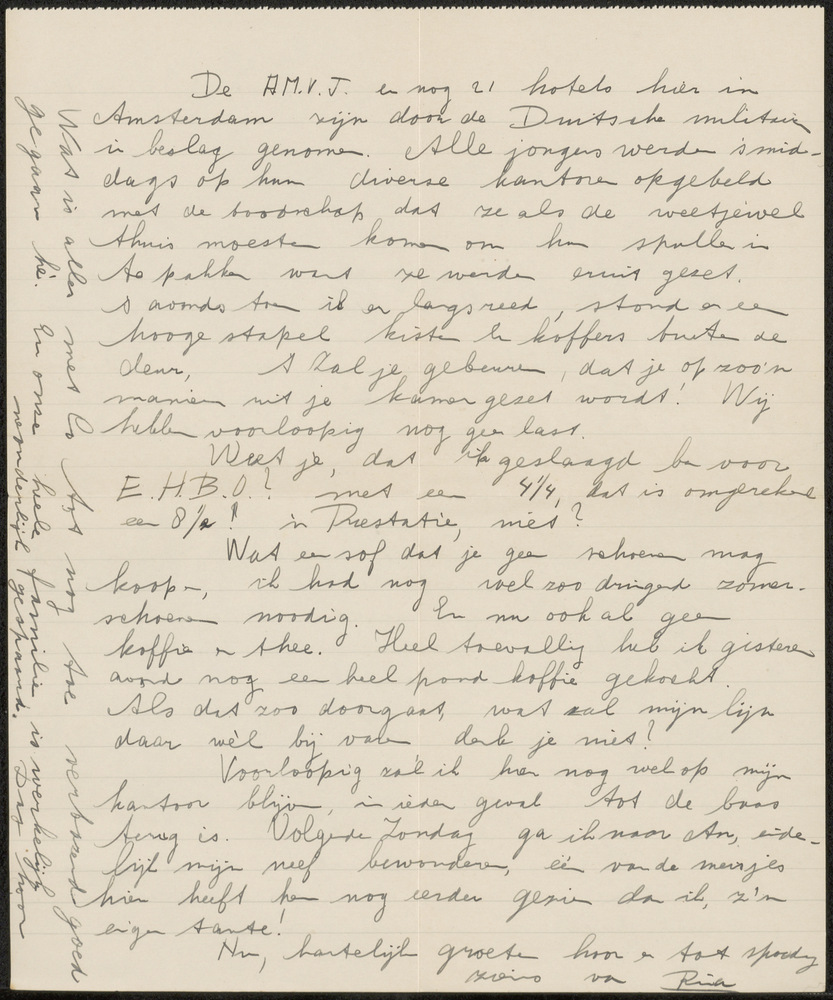 De A.M.V.J. en nog 21 hotels hier in
Amsterdam zijn door de Duitsche militair
in beslag genomen. Alle jongens werden 's mid-
dags op hun diverse kantoren opgebeld
met de boodschap dat ze als de weetjewel
thuis moesten komen om hun spullen in
te pakken want ze werden eruit gezet.
's avonds toen ik er langs reed, stond er een
hooge stapel kisten en koffers buiten de
deur, 't Zal je gebeuren, dat je op zoo'n
manier uit je kamer gezet wordt! Wij
hebben voorloopig nog geen last.
Weet je, dat ik geslaagd ben voor
E.H.B.O.? met een 4 1/4, dat is omgerekend
een 8 1/2! 'n Prestatie, niet?
Wat een sof dat je geen schoenen mag
koopen, ik had nog wel zoo dringend zomer-
schoenen noodig. En nu ook al geen
koffie en thee. Heel toevallig heb ik gisteren
avond nog een heel pond koffie gekocht.
Als dat zoo doorgaat, wat zal mijn lijn
daar wèl bij varen denk je niet?
Voorloopig zal ik hier nog wel op mijn
kantoor blijven, in ieder geval tot de baas
terug is. Volgende Zondag ga ik naar An, einde-
lijk mijn neef bewonderen, één van de meisjes
hier heeft hem nog eerder gezien dan ik, z'n
eigen tante!
Nu, hartelijke groeten hoor en tot spoedig
ziens van Ria
Wat is alles met Co tot nog toe verbazend goed
gegaan hè. En onze heele familie is werkelijk
wonderlijk gespaard. Dag hoor